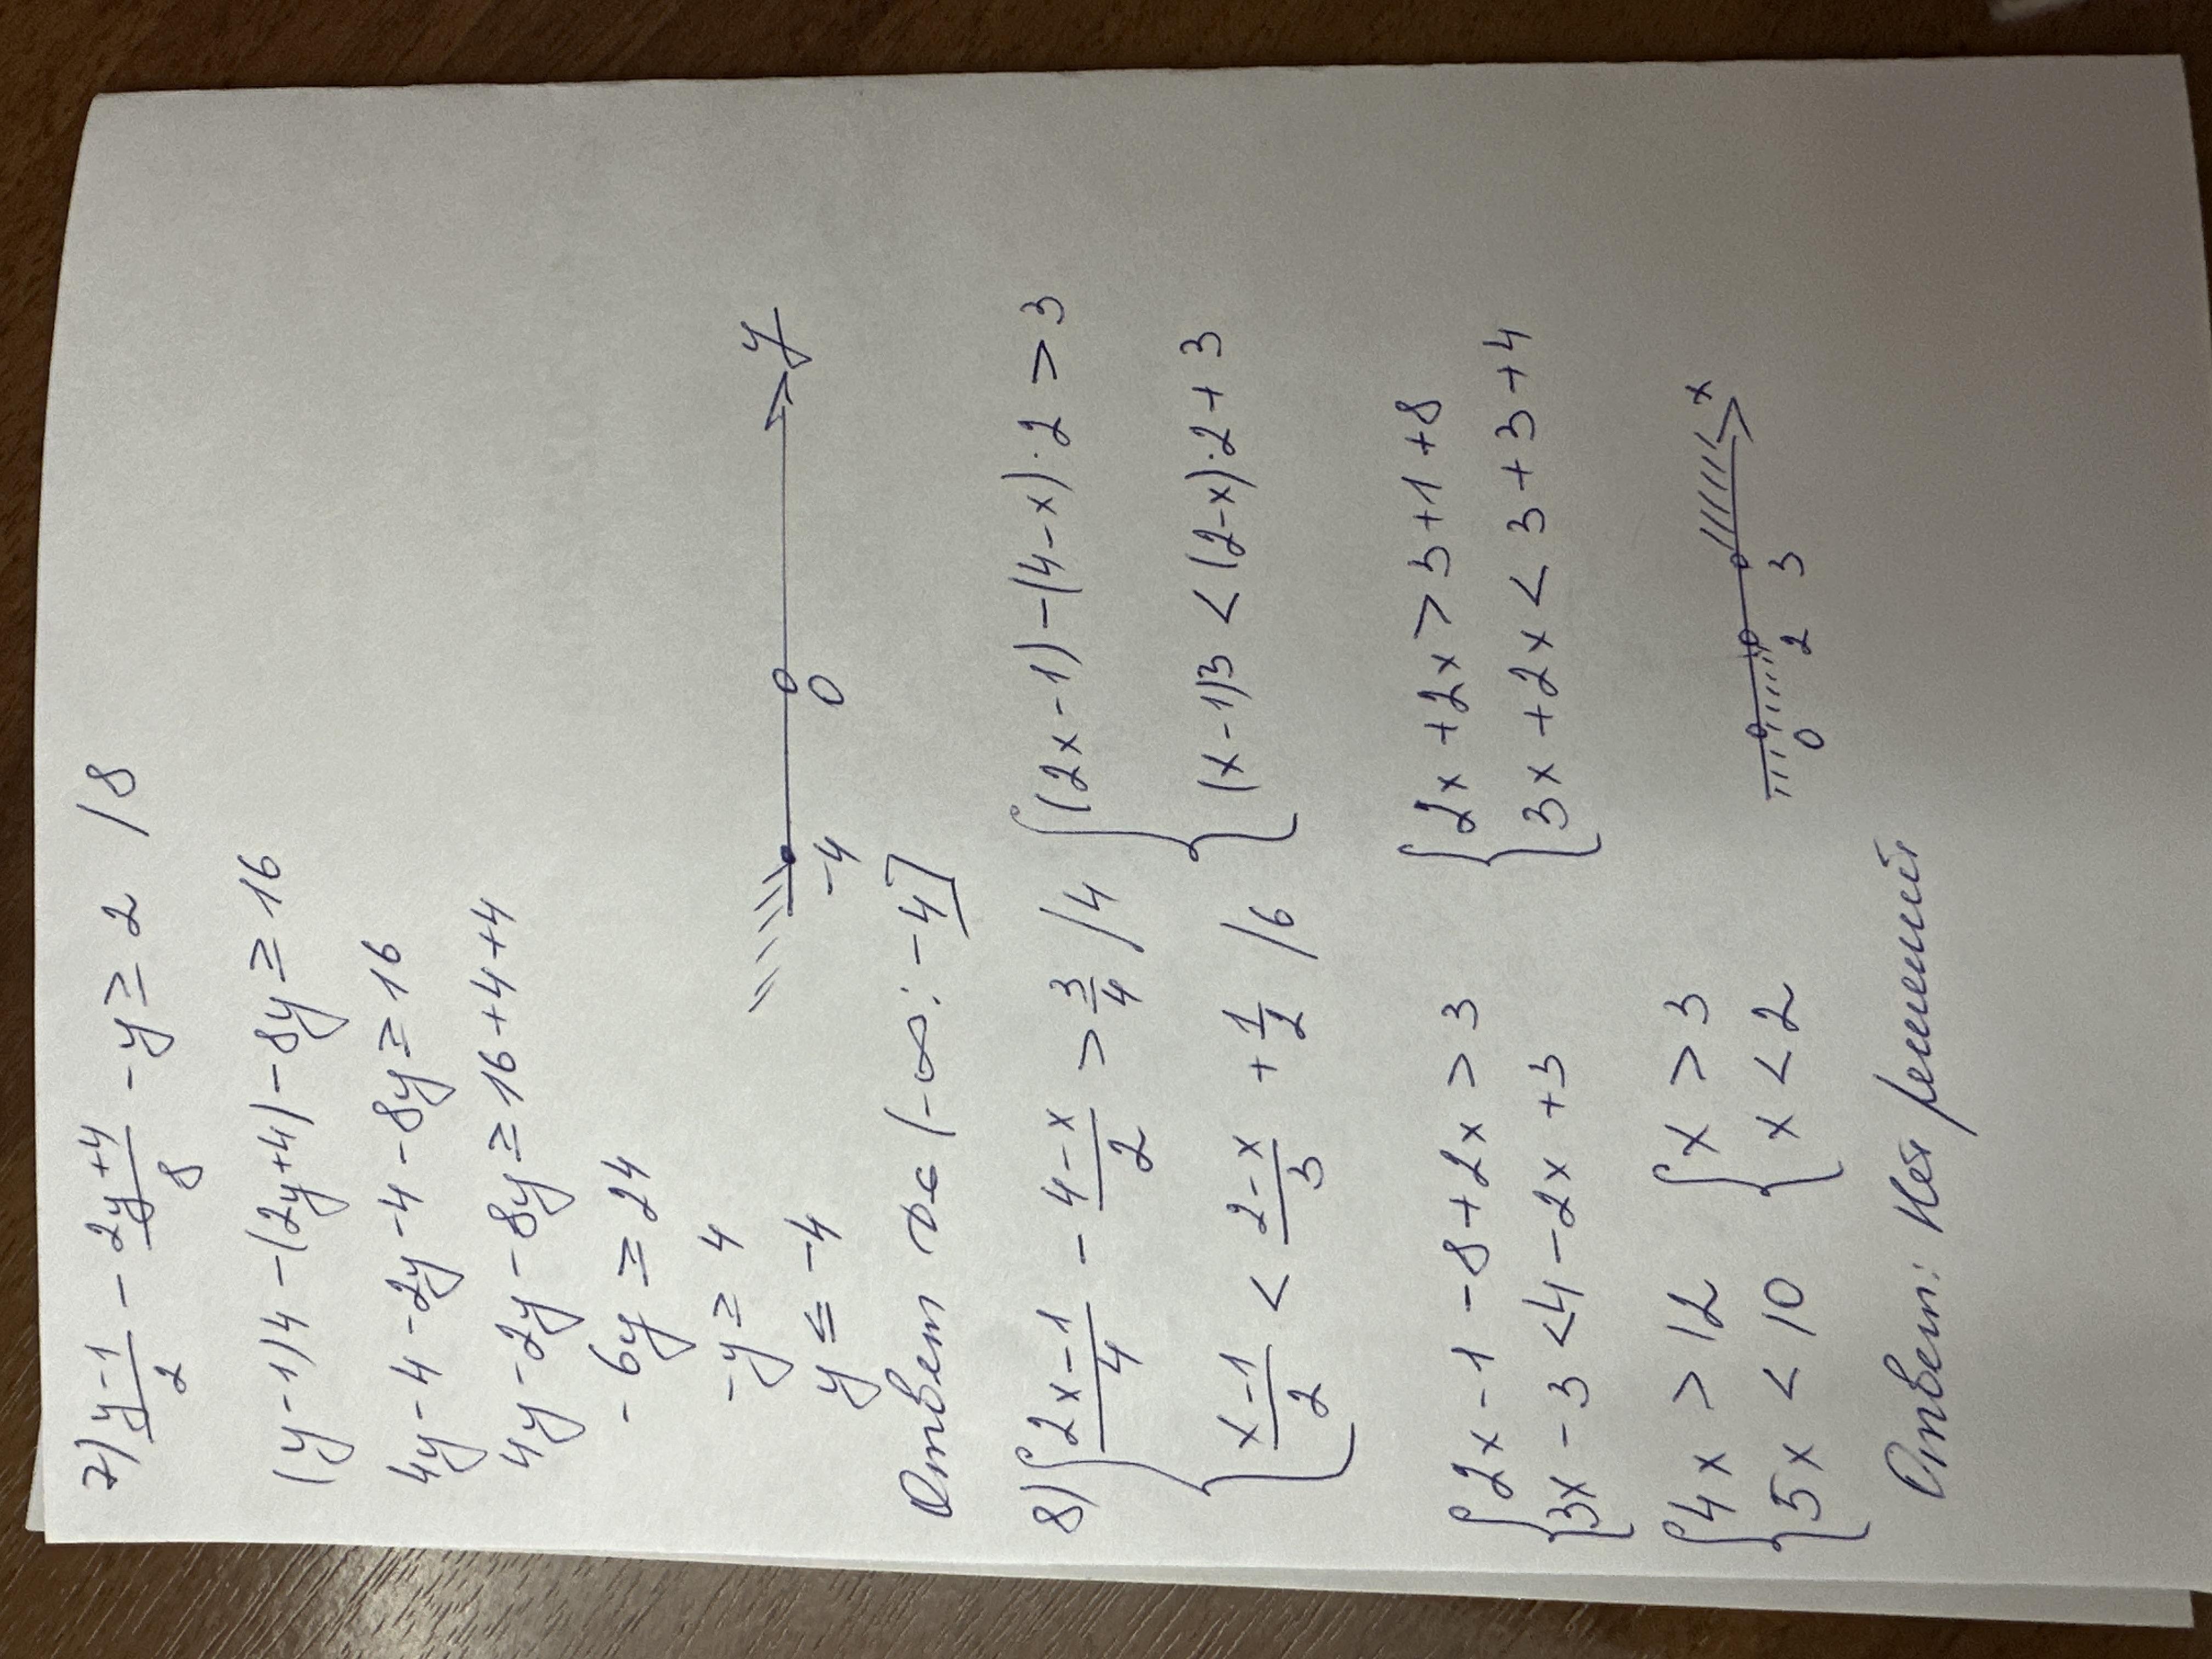 7) (y-1)/2 - (2y+4)/8 - y ≥ 2 /8
(y-1)4 - (2y+4) - 8y ≥ 16
4y - 4 - 2y - 4 - 8y ≥ 16
4y - 2y - 8y ≥ 16 + 4 + 4
-6y ≥ 24
-y ≥ 4
y ≤ -4
-4 0 y
Ответ x ∈ (-∞; -4]
8) { (2x-1)/4 - (4-x)/2 > 3/4 /4 { (2x-1) - (4-x)·2 > 3
(x-1)/2 < (2-x)/3 + 1/2 /6 (x-1)3 < (2-x)·2 + 3
{ 2x - 1 - 8 + 2x > 3 { 2x + 2x > 3 + 1 + 8
3x - 3 < 4 - 2x + 3 3x + 2x < 3 + 3 + 4
{ 4x > 12 { x > 3
5x < 10 x < 2
0 2 3 x
Ответ: Нет решений